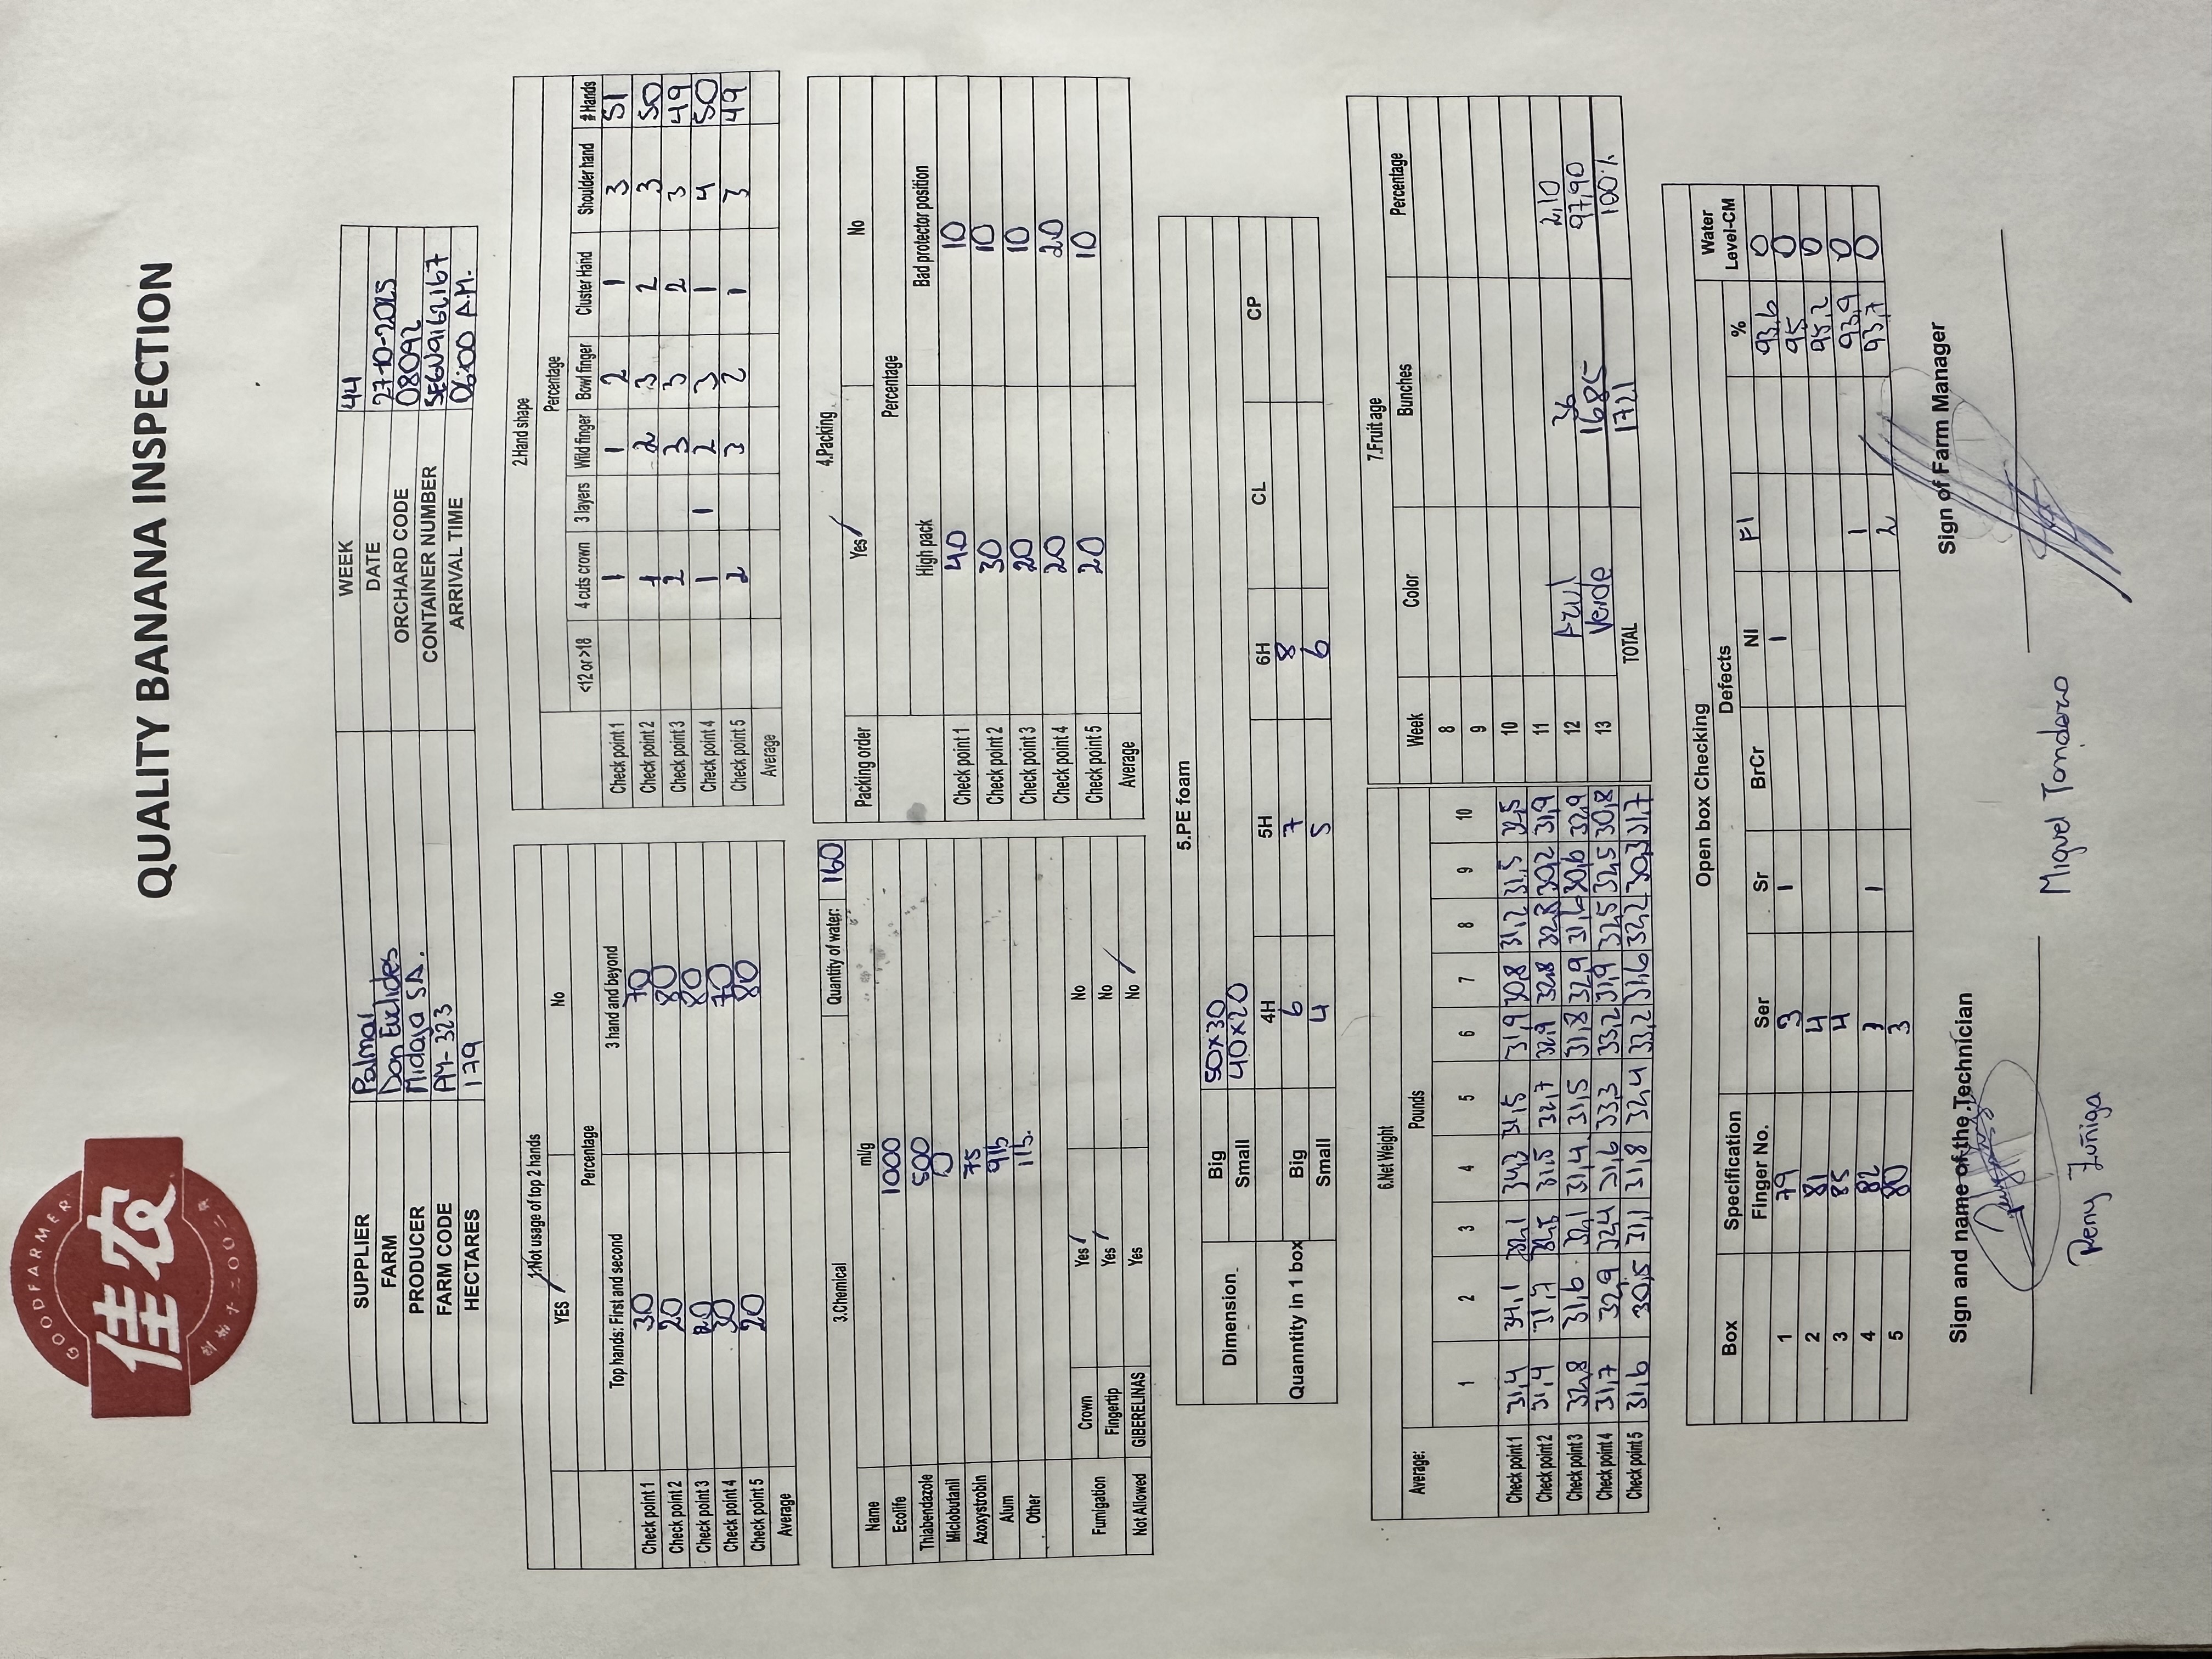 GOODFARMER
佳农
QUALITY BANANA INSPECTION
SUPPLIER Palmar WEEK 44
FARM Don Euclides DATE 27-10-2025
PRODUCER Midaja SA. ORCHARD CODE 08092
FARM CODE AM-323 CONTAINER NUMBER SEGU9162167
HECTARES 179 ARRIVAL TIME 06:00 A.M.
1.Not usage of top 2 hands
YES No
Percentage
Top hands: First and second 3 hand and beyond
Check point 1 30 70
Check point 2 20 80
Check point 3 20 80
Check point 4 30 70
Check point 5 20 80
Average
2.Hand shape
Percentage
<12 or >18 4 cuts crown 3 layers Wild finger Bowl finger Cluster Hand Shoulder hand # Hands
Check point 1 1 1 2 1 3 51
Check point 2 1 2 3 2 3 50
Check point 3 2 3 3 2 3 49
Check point 4 1 1 2 3 1 4 50
Check point 5 2 3 2 1 3 49
Average
3.Chemical Quantity of water: 160
Name ml/g
Ecolife 1000
Thiabendazole 500
Miclobutanil 0
Azoxystrobin 75
Alum 915
Other 115.
Fumigation Crown Yes No
Fingertip Yes No
Not Allowed GIBERELINAS Yes No
4.Packing
Packing order Yes No
Percentage
High pack Bad protector position
Check point 1 40 10
Check point 2 30 10
Check point 3 20 10
Check point 4 20 20
Check point 5 20 10
Average
5.PE foam
Dimension Big 50x30
Small 40x20
4H 5H 6H CL CP
Quanntity in 1 box Big 6 7 8
Small 4 5 6
6.Net Weight
Average: Pounds
1 2 3 4 5 6 7 8 9 10
Check point 1 31,4 34,1 32,1 34,3 31,5 31,9 30,8 31,2 31,5 32,5
Check point 2 31,4 31,7 32,5 31,5 32,7 32,9 32,8 32,8 30,2 31,9
Check point 3 32,8 31,6 32,1 31,4 31,5 31,8 32,9 31,6 30,6 32,9
Check point 4 31,7 32,9 32,4 31,6 33,3 33,2 31,9 32,5 32,5 30,8
Check point 5 31,6 30,5 31,1 31,8 32,4 33,2 31,6 32,2 30,3 31,7
7.Fruit age
Week Color Bunches Percentage
8
9
10
11
12 Azul 36 2,10
13 Verde 1685 97,90
TOTAL 1721 100%
Open box Checking
Box Specification Defects Water Level-CM
Finger No. Ser Sr BrCr NI FI %
1 79 3 1 1 93,6 0
2 81 4 95 0
3 85 4 95,2 0
4 82 3 1 1 93,9 0
5 80 3 2 93,7 0
Sign and name of the Technician Sign of Farm Manager
Reny Zuñiga Miguel